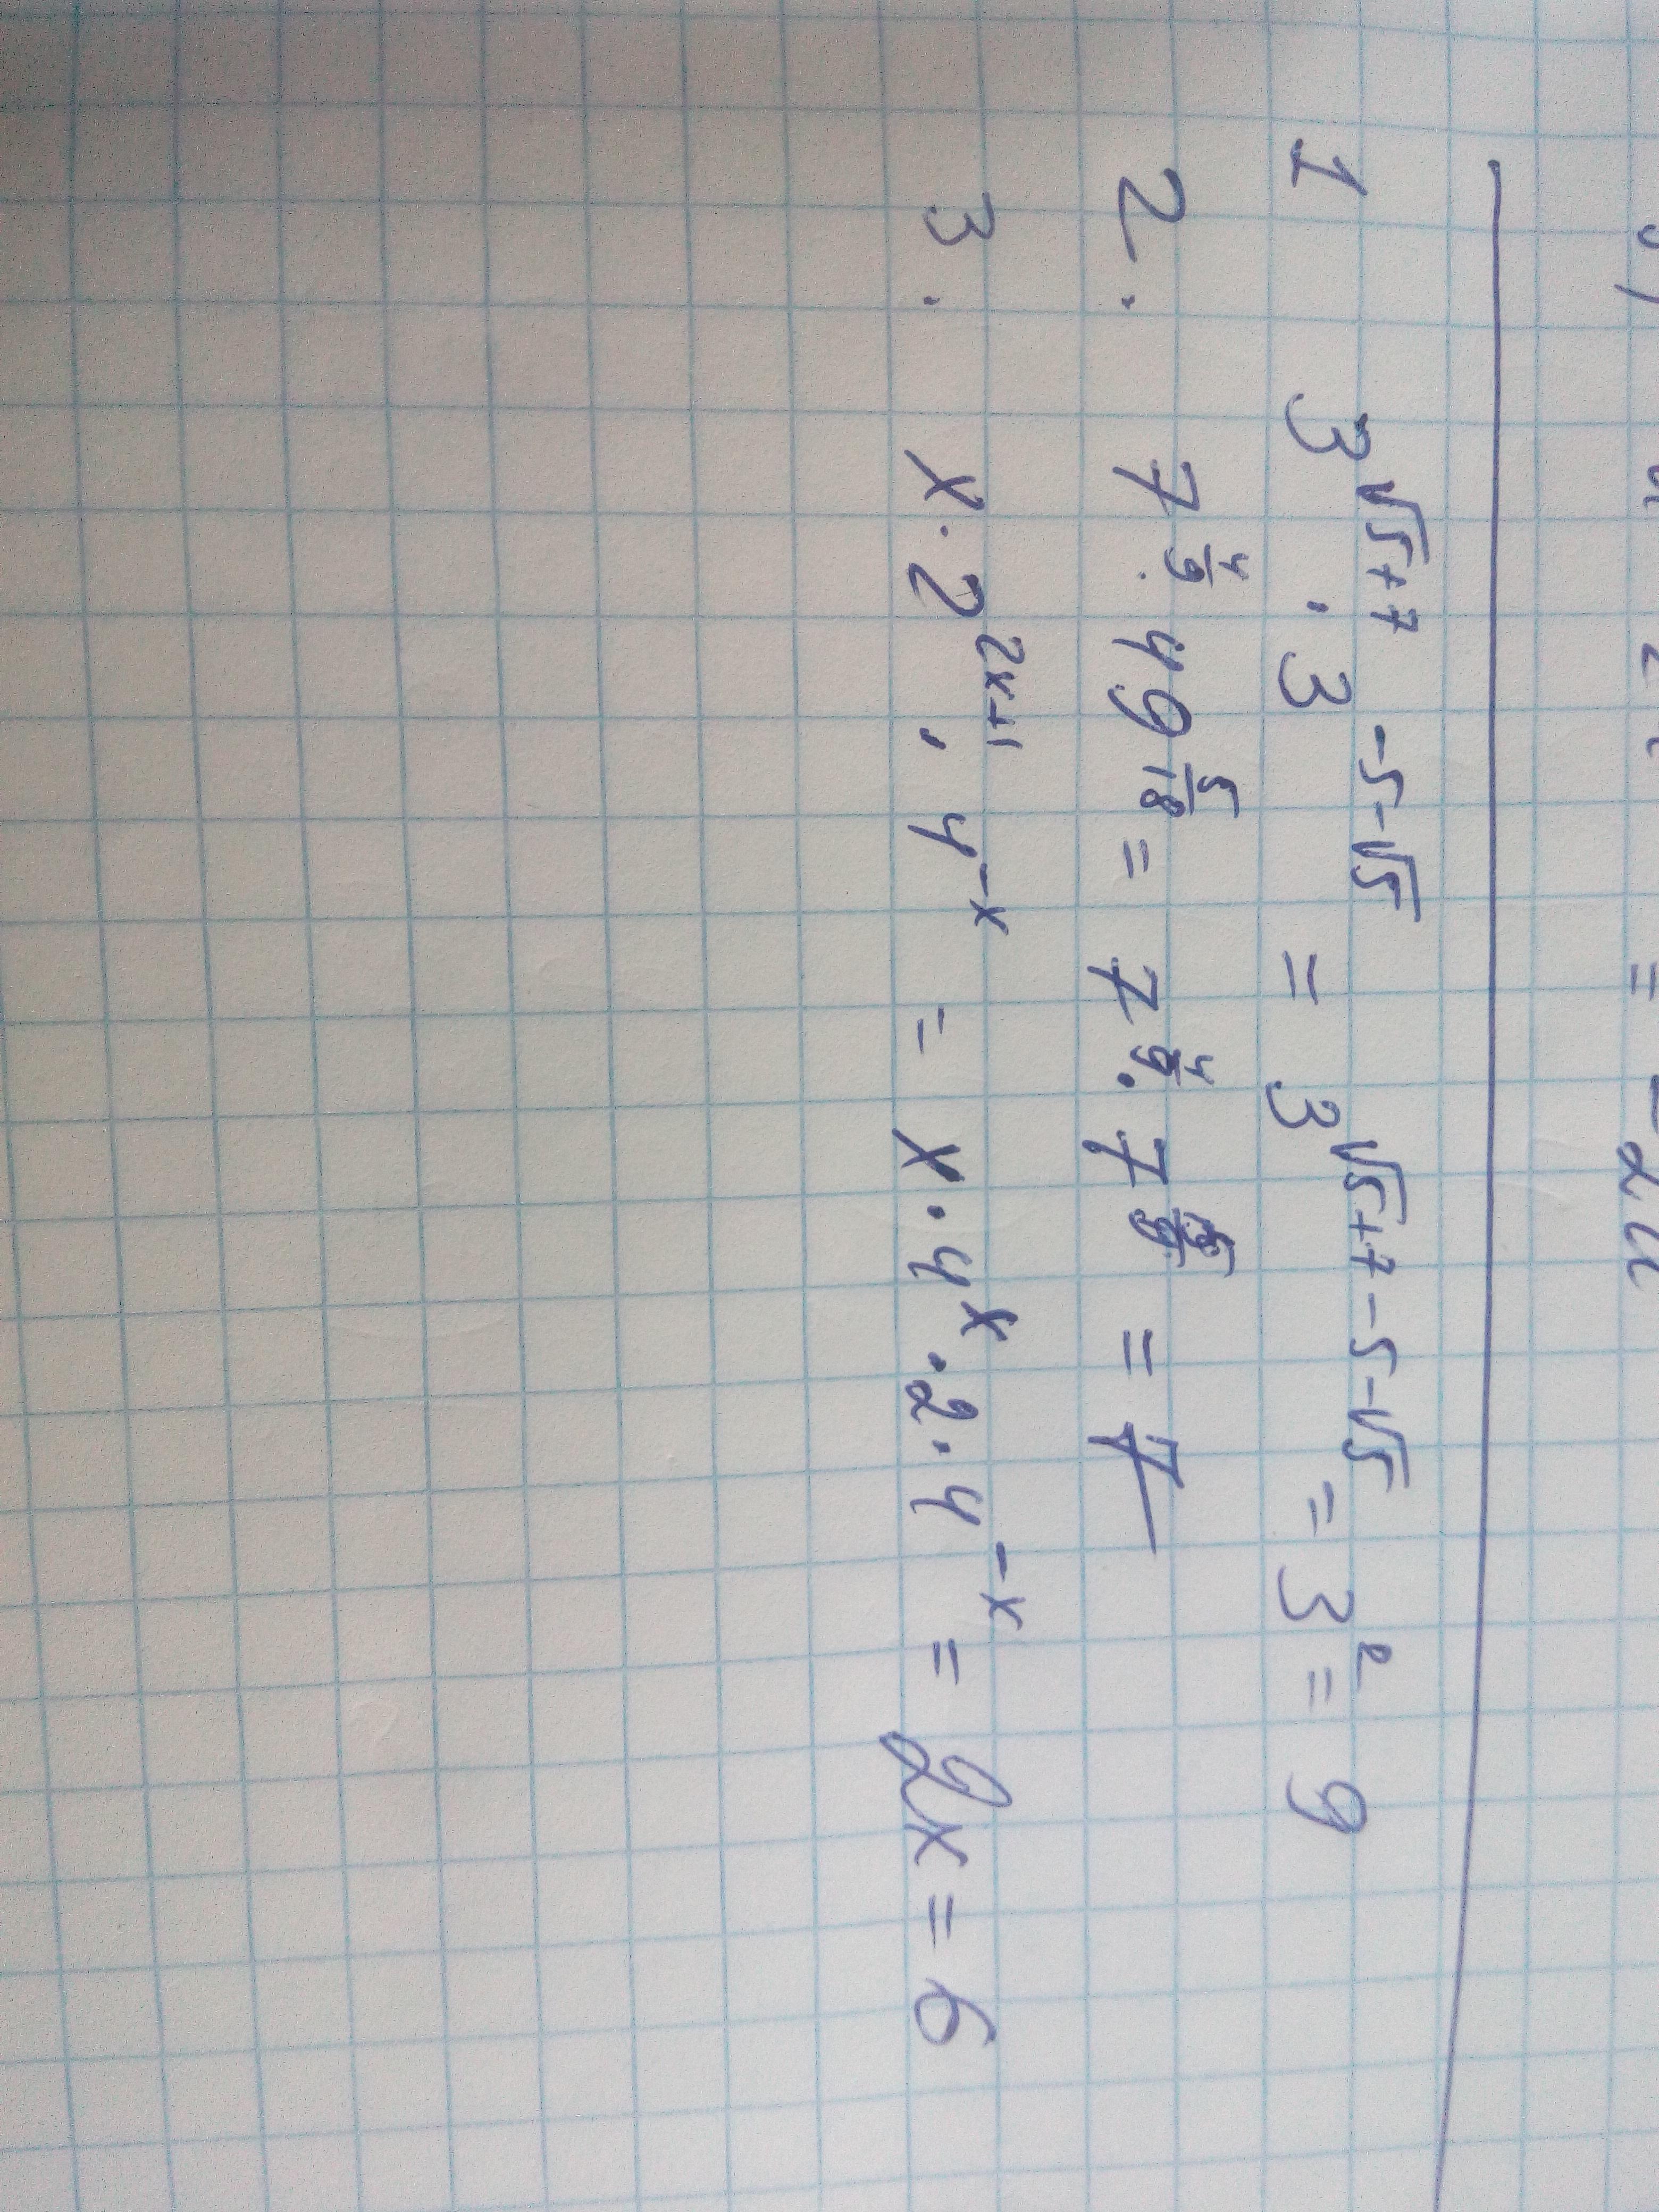 = -2u
1 3^{√5+7} · 3^{-5-√5} = 3^{√5+7-5-√5} = 3^2 = 9
2. 7^{4/9} · 49^{5/18} = 7^{4/9} · 7^{5/9} = 7
3. x · 2^{2x+1} · 4^{-x} = x · 4^x · 2 · 4^{-x} = 2x = 6